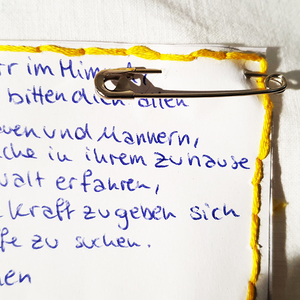 rr im Himmel
bitten dich allen
uen und Männern,
che in ihrem zuhause
walt erfahren,
kraft zugeben sich
fe zu suchen.
en